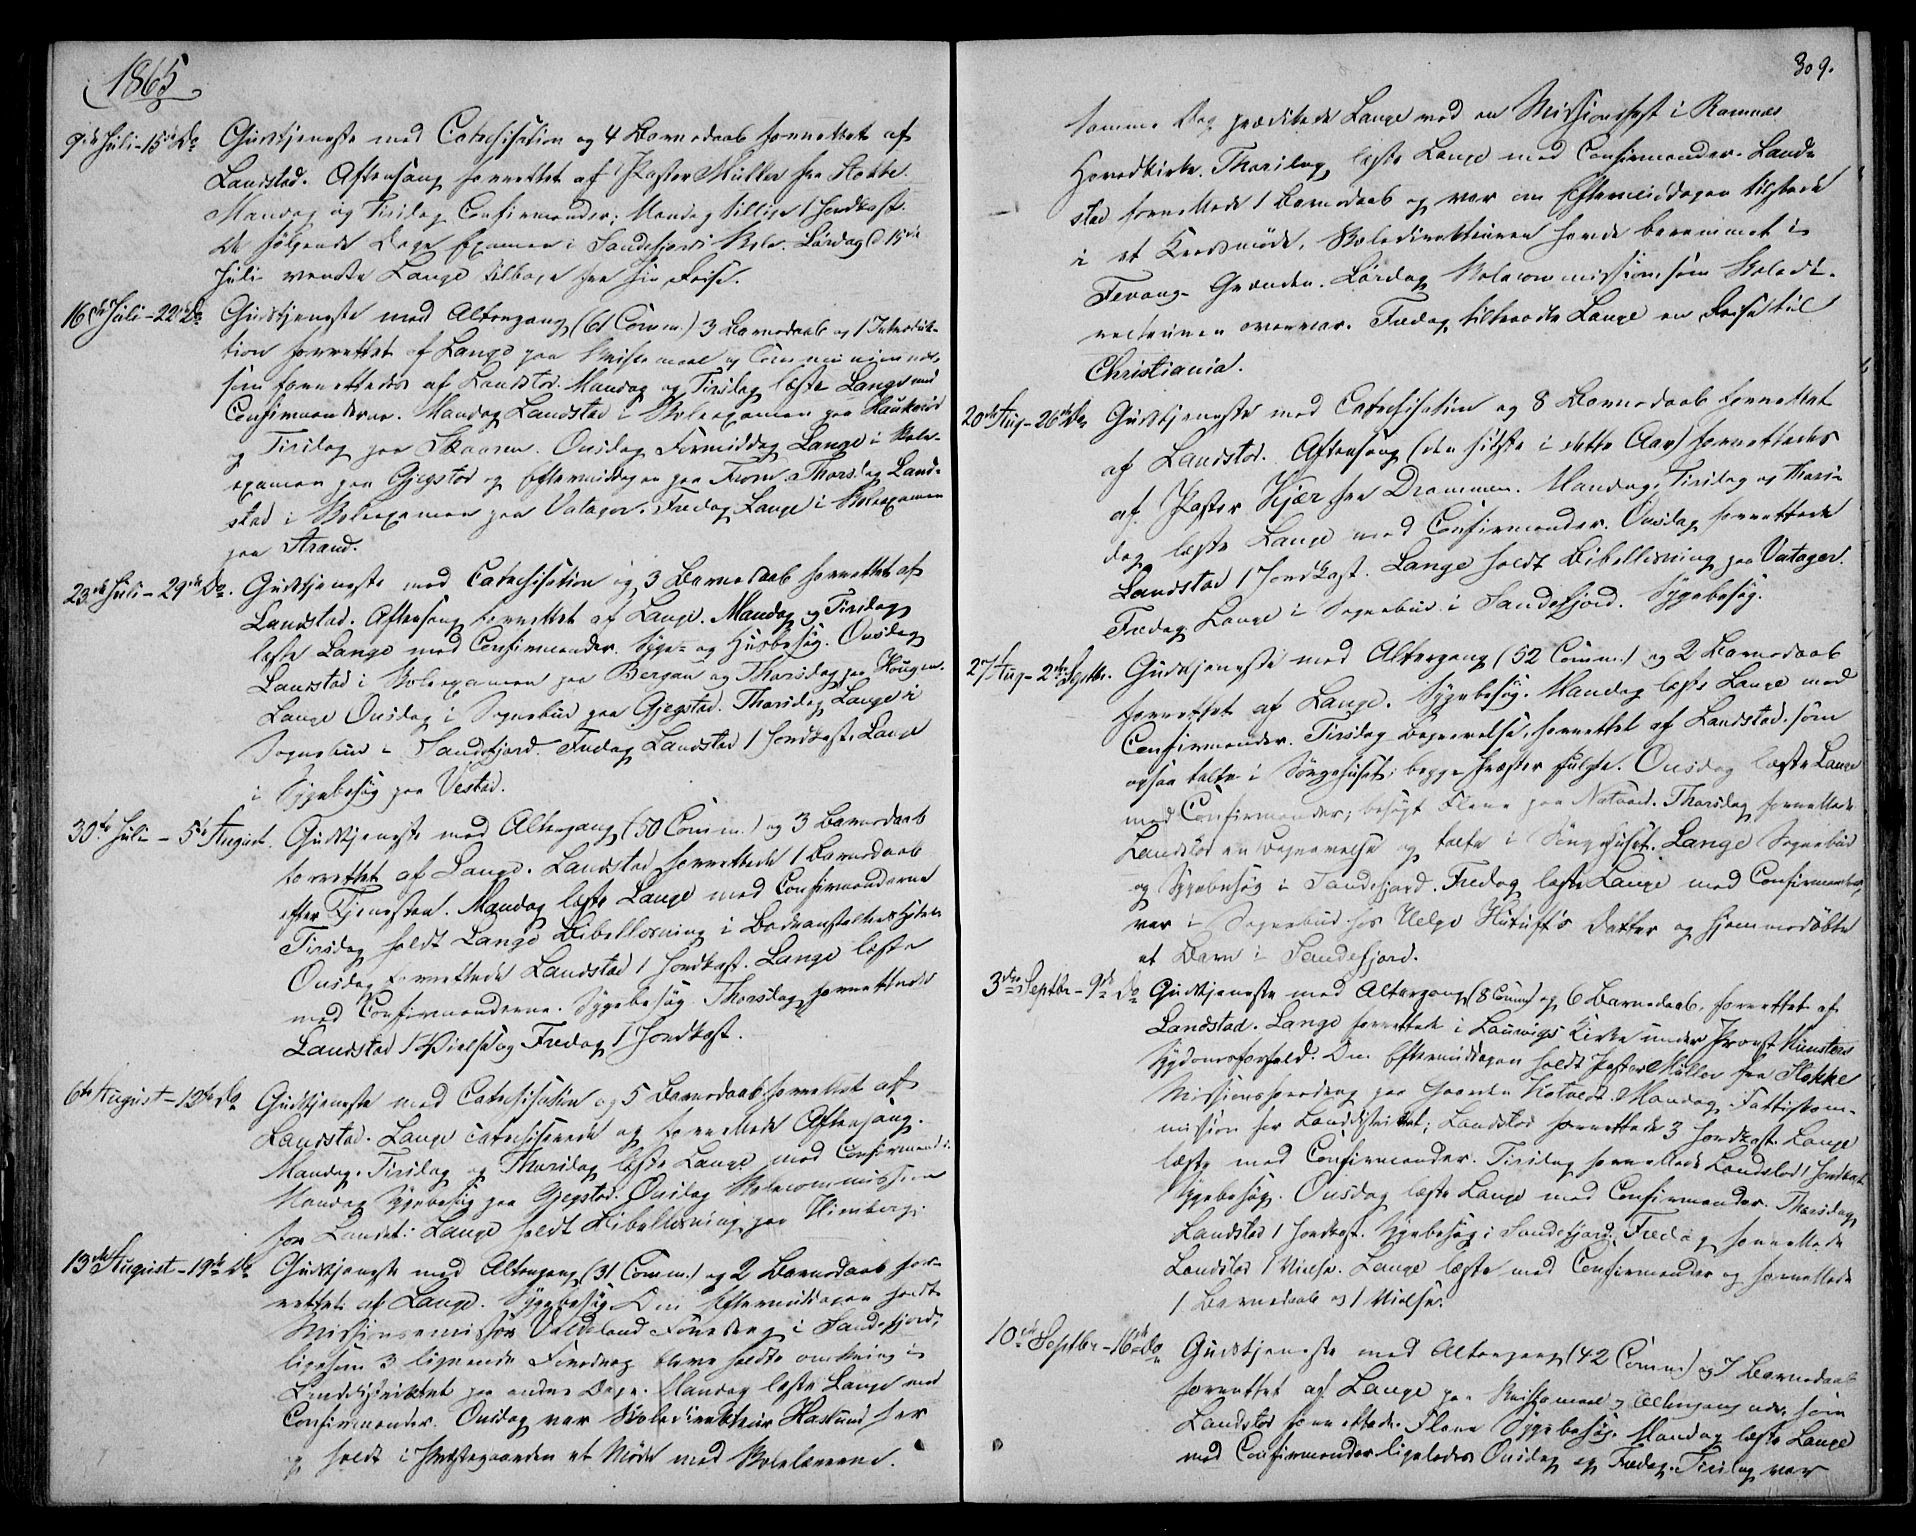 1865
9de Juli-15de Do Gudstjeneste med Catechisation og 4 Barnedaab forrettet af
Landstad. Aftensang forrettet af Pastor Müller fra Stokke
Mandag og Tirsdag Confirmander; Mandag tillige 1 Jordkast.
De følgende Dage Examen i Sandefjords Skole. Lørdag d 15de
Juli vendte Lange tilbage fra sin Reise.
16de Juli-22de Do Gudstjeneste med Altergang (61 Comm.) 3 Barnedaab og 1 Introduk-
tion forrettet af Lange paa Skriftemaal og Communionen nær,
som forrettedes af Landstad. Mandag og Tirsdag læste Lange med
Confirmanderne. Mandag Landstad i Skoleexamen paa Haukerød
og Tirsdag paa Skaaren. Onsdag Formiddag Lange i Skole-
examen paa Gjegstad og Eftermiddagen paa Fevm. Thorsdag Land-
stad i Skoleexamen paa Vatager. Fredag Lange i Skoleexamen
paa Strand.
23de Juli-29de Do. Gudstjeneste med Catechisation og 3 Barnedaab forrettet af
Landstad. Aftensang forrettet af Lange. Mandag og Tirsdag
læste Lange med Confirmander. Syge- og Husbesøg. Onsdag
Landstad i Skoleexamen paa Bergan og Thorsdag paa Hougen.
Lange Onsdag i Sognebud paa Gjegstad. Thorsdag Lange i
Sognebud i Sandefjord. Fredag Landstad 1 Jordkast. Lange
i Sygebesøg paa Vestad.
30te Juli - 5te August. Gudstjeneste med Altergang (50 Comm.) og 3 Barnedaab
forrettet af Lange. Landstad forrettede 1 Barnedaab
efter Tjenesten. Mandag læste Lange med Confirmanderne
Tirsdag holdt Lange Bibellæsning i Badeanstaltens
Onsdag forrettede Landstad 1 Jordkast. Lange læste
med Confirmanderne. Sygebesøg. Thorsdag forrettede
Landstad 1 Vielse og Fredag 1 Jordkast.
6te August-12te Do Gudstjeneste med Catechisation og 5 Barnedaab forrettet af
Landstad. Lange catechiserede og forrettede Aftensang.
Mandag, Tirsdag og Thorsdag læste Lange med Confirmander.
Mandag Sygebesøg paa Gjegstad. Onsdag Skolecommission
for Landet. Lange holdt Bibellæsning paa Himberg.
13de August-19de Do Gudstjeneste med Altergang (31 Comm.) og 2 Barnedaab for-
rettet af Lange. Sygebesøg. Om Eftermiddagen holdt
Missionsemissær Valdeland Foredrag i Sandefjord;
ligesom 3 lignende Foredrag bleve holdte omkring i
Landdistriktet paa andre Dage. Mandag læste Lange med
Confirmander. Onsdag var Skoledirekteur Haslund her
og holdt i Præstegaarden et Møde med Skolelærerne.
309.
Samme Dag prædikede Lange ved en Missionsfest i Ramnæs
Hovedkirke. Thorsdag læste Lange med Confirmander. Land-
stad forrettede 1 Barnedaab og var om Eftermiddagen tilstede
i et Kredsmøde, Skoledirekteuren havde berammet i
Fevang-Grænden. Lørdag Skolecommission, som Skoledi-
recteuren overvar. Fredag tiltraadte Lange en Reise til
Christiania.
20de Aug-26de Do Gudstjeneste med Catechisation og 8 Barnedaab forrettet
af Landstad. Aftensang (den sidste i dette Aar) forrettedes
af Pastor Kjær fra Drammen. Mandag, Tirsdag og Thors-
dag læste Lange med Confirmander. Onsdag forrettede
Landstad 1 Jordkast. Lange holdt Bibellæsning paa Vatager.
Fredag Lange i Sognebud i Sandefjord. Sygebesøg.
27 Aug-2de Septbr. Gudstjeneste med Altergang (52 Comm.) og 2 Barnedaab
forrettet af Lange. Sygebesøg. Mandag læste Lange med
Confirmander. Tirsdag Begravelse, forrettet af Landstad, som
ogsaa talte i Sørgehuset; begge Præster fulgte. Onsdag læste Lange
med Confirmander; besøgt Flere paa Nøtvedt. Thorsdag forrettede
Landstad en Begravelse og talte i Sørgehuset. Lange Sognebud
og Sygebesøg i Sandefjord. Fredag læste Lange med Confirmander,
var i Sognebud hos Helge Datter og hjemmedøbte
et Barn i Sandefjord.
3die Septbr-9de Do Gudstjeneste med Altergang (8 Comm) og 6 Barnedaab, forrettet af
Landstad. Lange forrettede i Laurvigs Kirke under Provst Münsters
Sygdomsforfald. Om Eftermiddagen holdt Pastor Müller fra Stokke
Missionsforedrag paa Gaarden Mandag Fattigkom-
mission for Landdistriktet; Landstad forrettede 3 Jordkast. Lange
læste med Confirmander. Tirsdag forrettede Landstad 1 Jordkast
Sygebesøg. Onsdag læste Lange med Confirmander. Thorsdag
Landstad 1 Jordkast. Sygebesøg i Sandefjord. Fredag forrettede
Landstad 1 Vielse. Lange læste med Confirmander og forrettede
1 Barnedaab og 1 Vielse.
10de Septbr-16de Do Gudstjeneste med Altergang (42 Comm) og 7 Barnedaab
forrettet af Lange paa Skriftemaal og Altergang nær, som
Landstad forrettede. Flere Sygebesøg. Mandag læste Lange
med Confirmander ligeledes Onsdag og Fredag. Tirsdag var